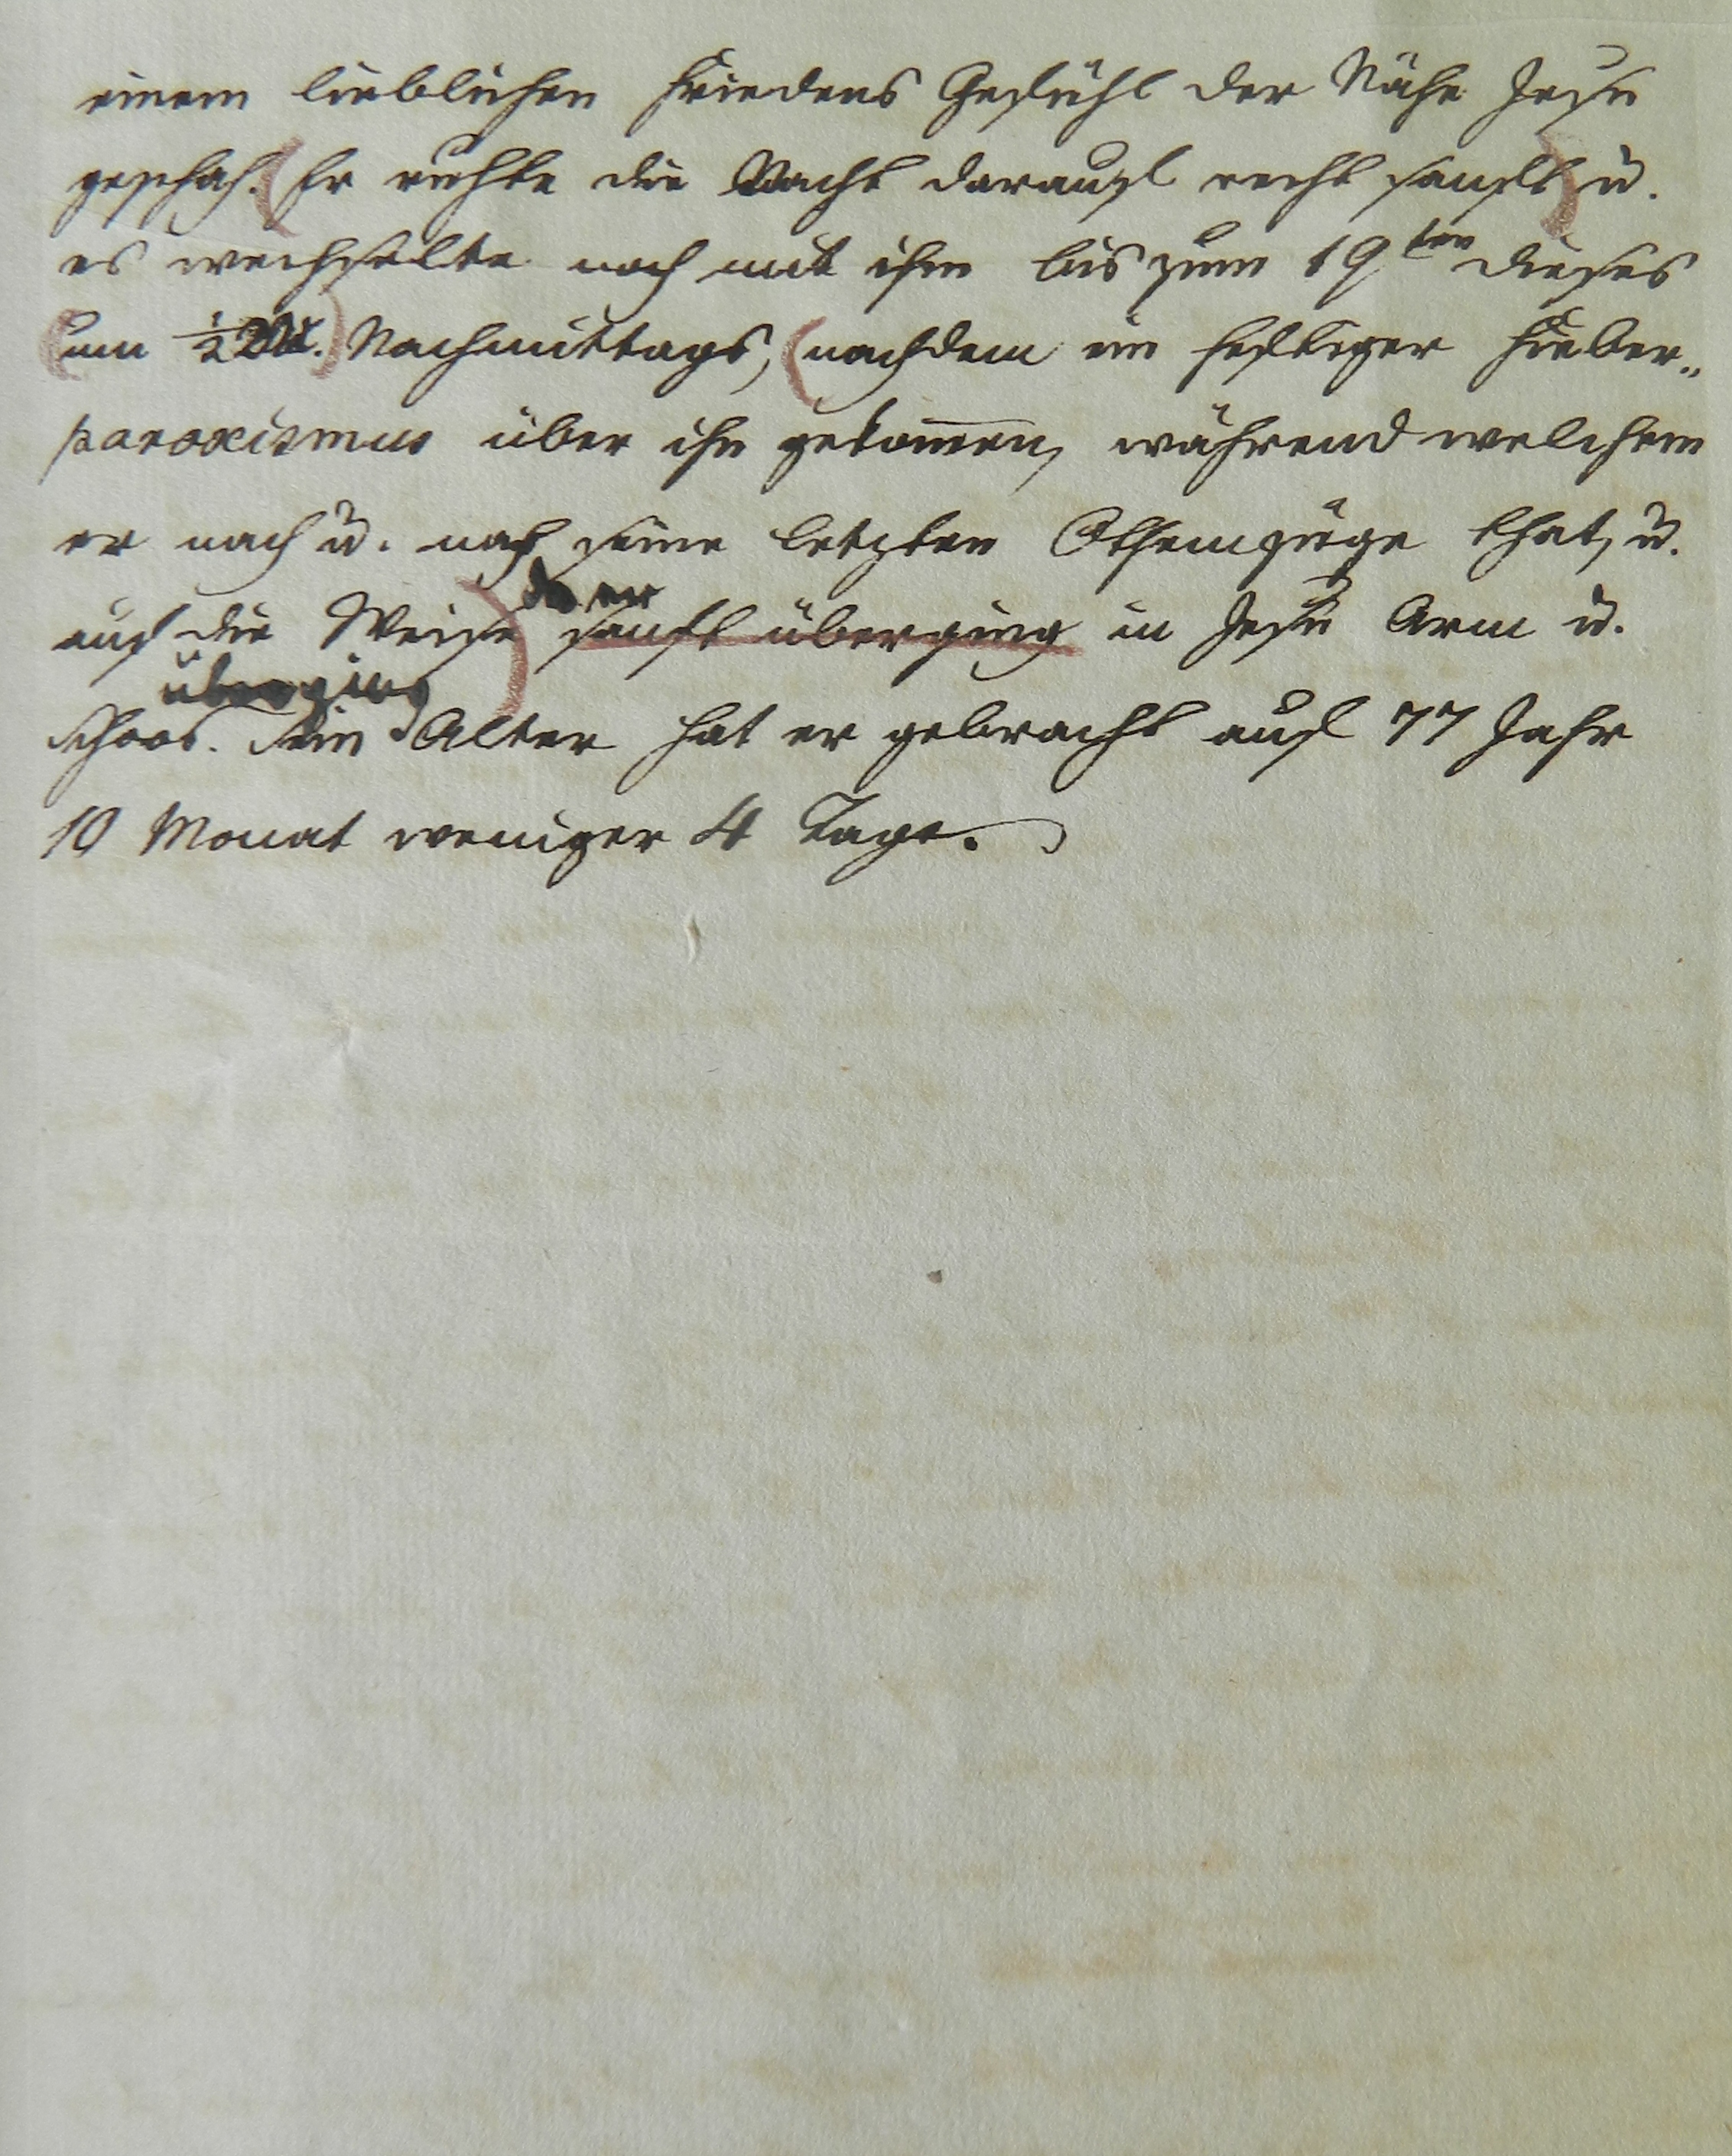 einem lieblichen Friedens Gefühl der Nähe Jesu
geschah. (Er ruhte die Nacht darauf recht sanft) u.
es wechselte noch mit ihm bis zum 19ten dieses
(um ½2 U.) Nachmittags, (nachdem ein heftiger Fieber„
paroxismus über ihn gekom̅en, während welchem
er nach u. nach seine letzten Othemzüge that, u.
da er
auf die Weise) sanft überging in Jesu Arm u.
überging
Schoos. Sein Alter hat er gebracht auf 77 Jahr
10 Monat weniger 4 Tage.